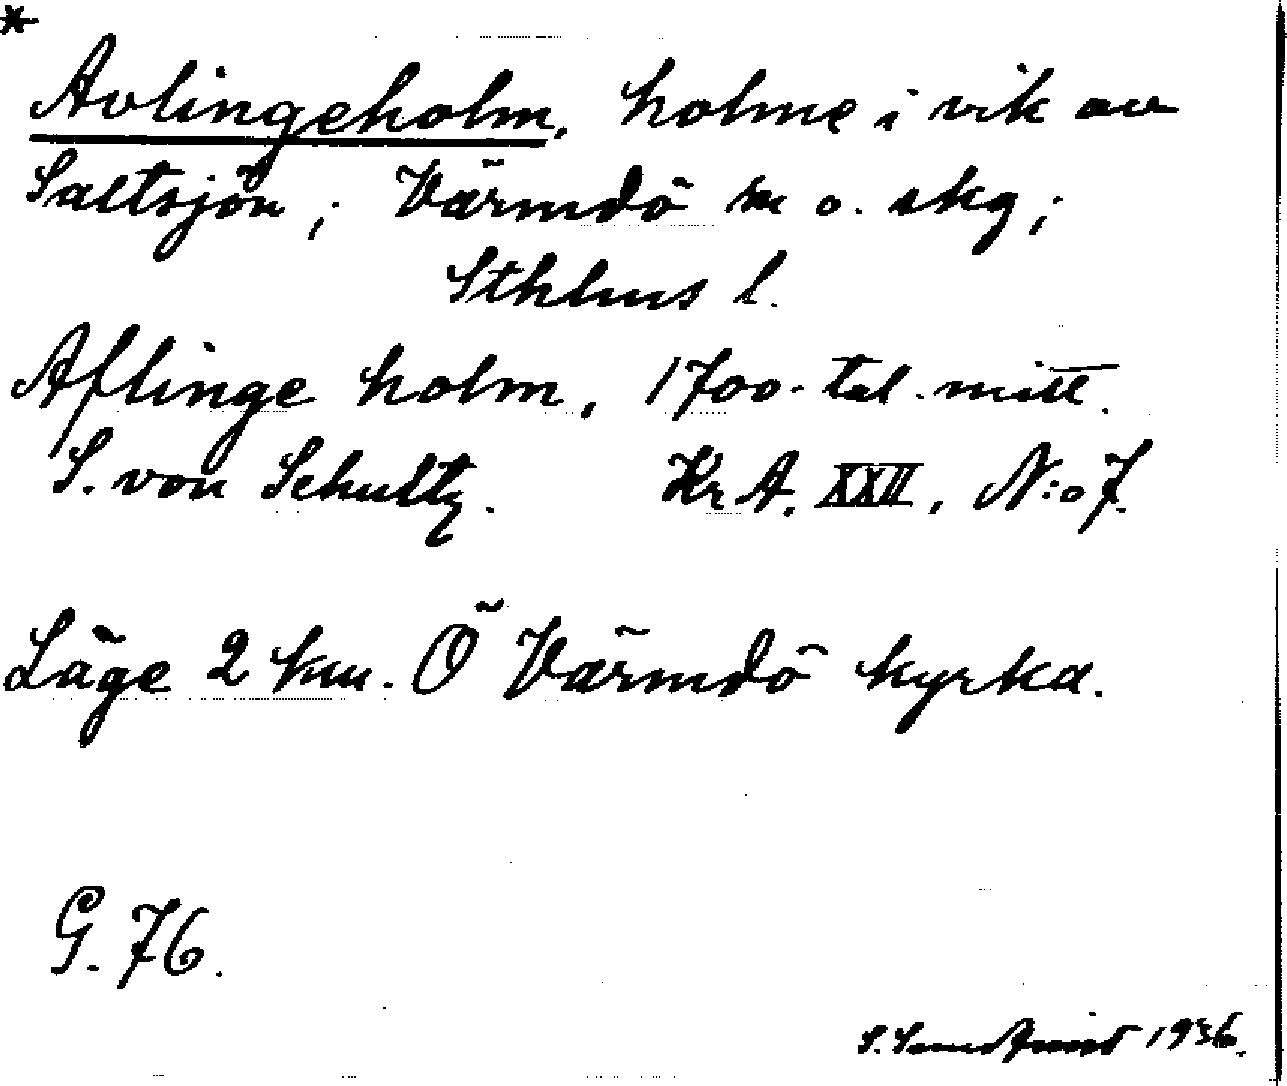 *
Avlingeholm, holme i vik av
Saltsjön; Värmdö sn o. skg;
Sthlms l.
Aflinge holm, 1700-tal. mitt.
S. von Schultz. Kr A. XXII, N:o 7.
Läge 2 km. Ö Värmdö kyrka.
G. 76.
S. 1936.